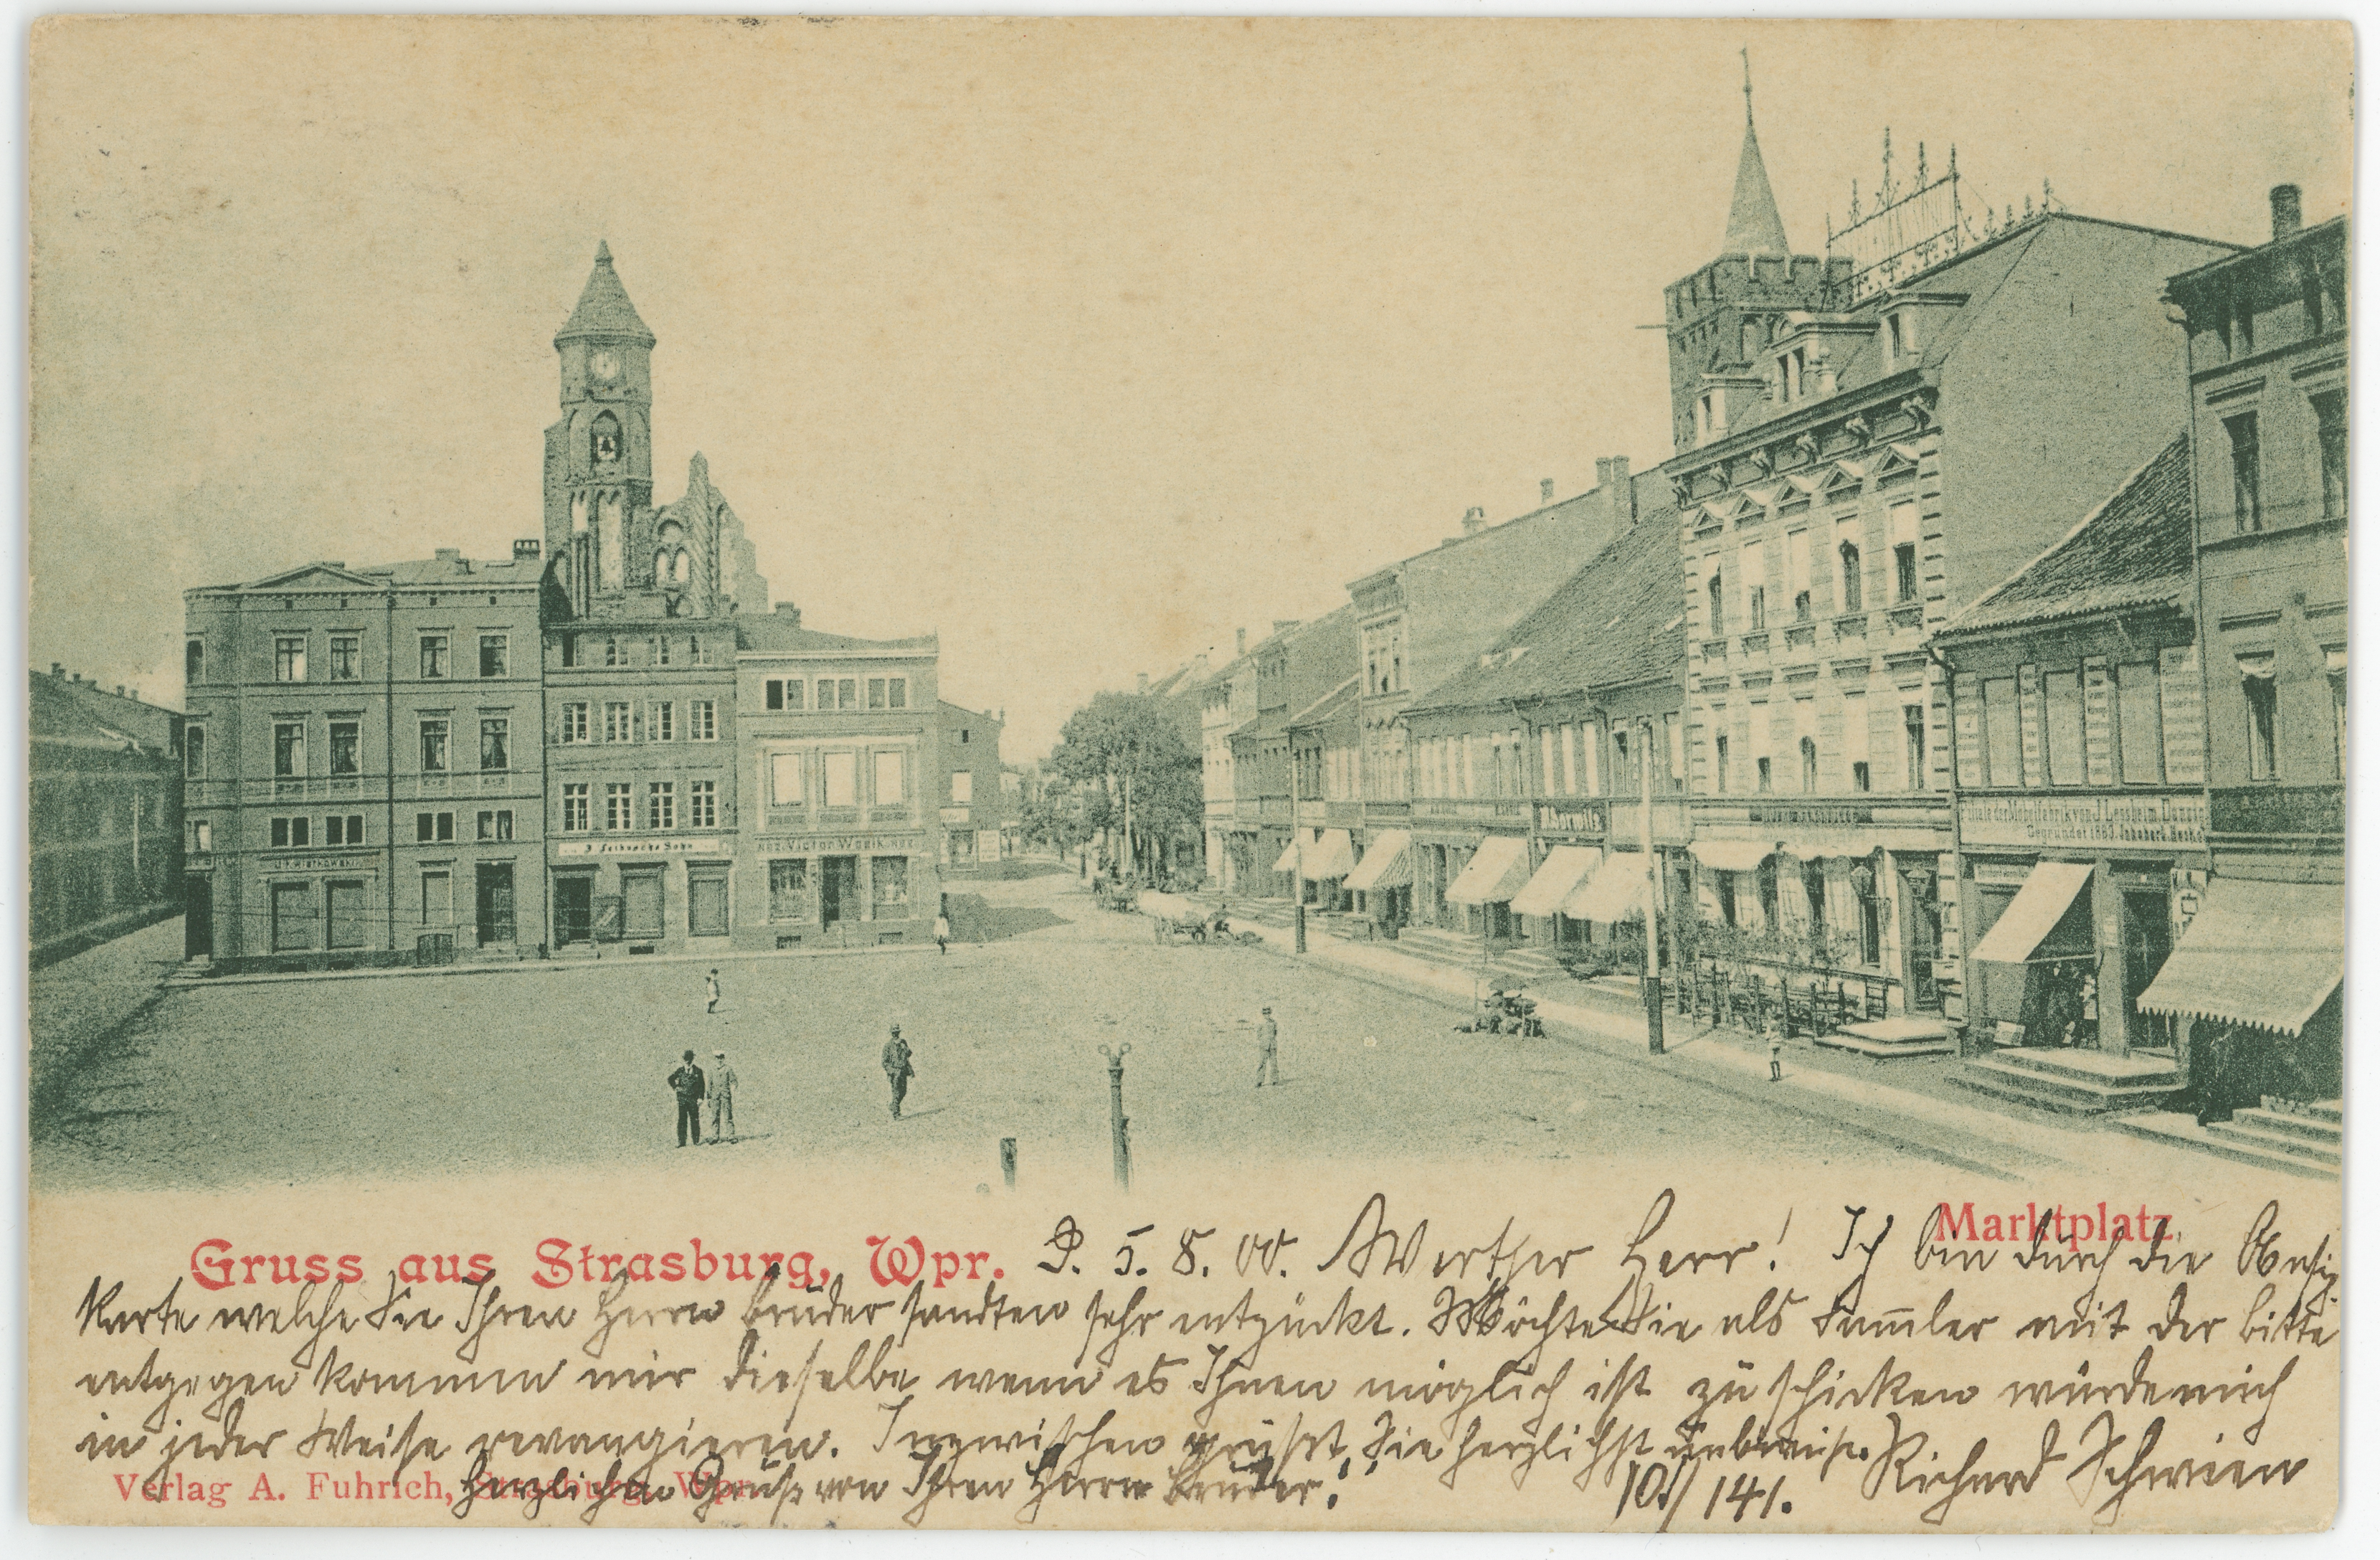 J. Feibusch's Sohn
Victor Wodik
Horwitz
Filiale der Möbelfabrik von J. Lessheim, Danzig
Gegründet 1880.
Marktplatz.
Gruss aus Strasburg, Wpr. P. 5. 8. 00. Werther Herr! Ich bin durch die Ansig
Karte welche Sie Ihren Herrn Bruder sandten sehr entzückt. Möchte Sie als Sammler mit der Bitte
entgegen kommen mir dieselbe, wenn es Ihnen möglich ist zu schicken würde mich
in jeder Weise revangieren. Inzwischen grüsst Sie herzlichst Richard Schwien
Verlag A. Fuhrich, Strasburg, Wpr.
Herzlichen Gruß von Ihren Herrn Bruder!
10./141.